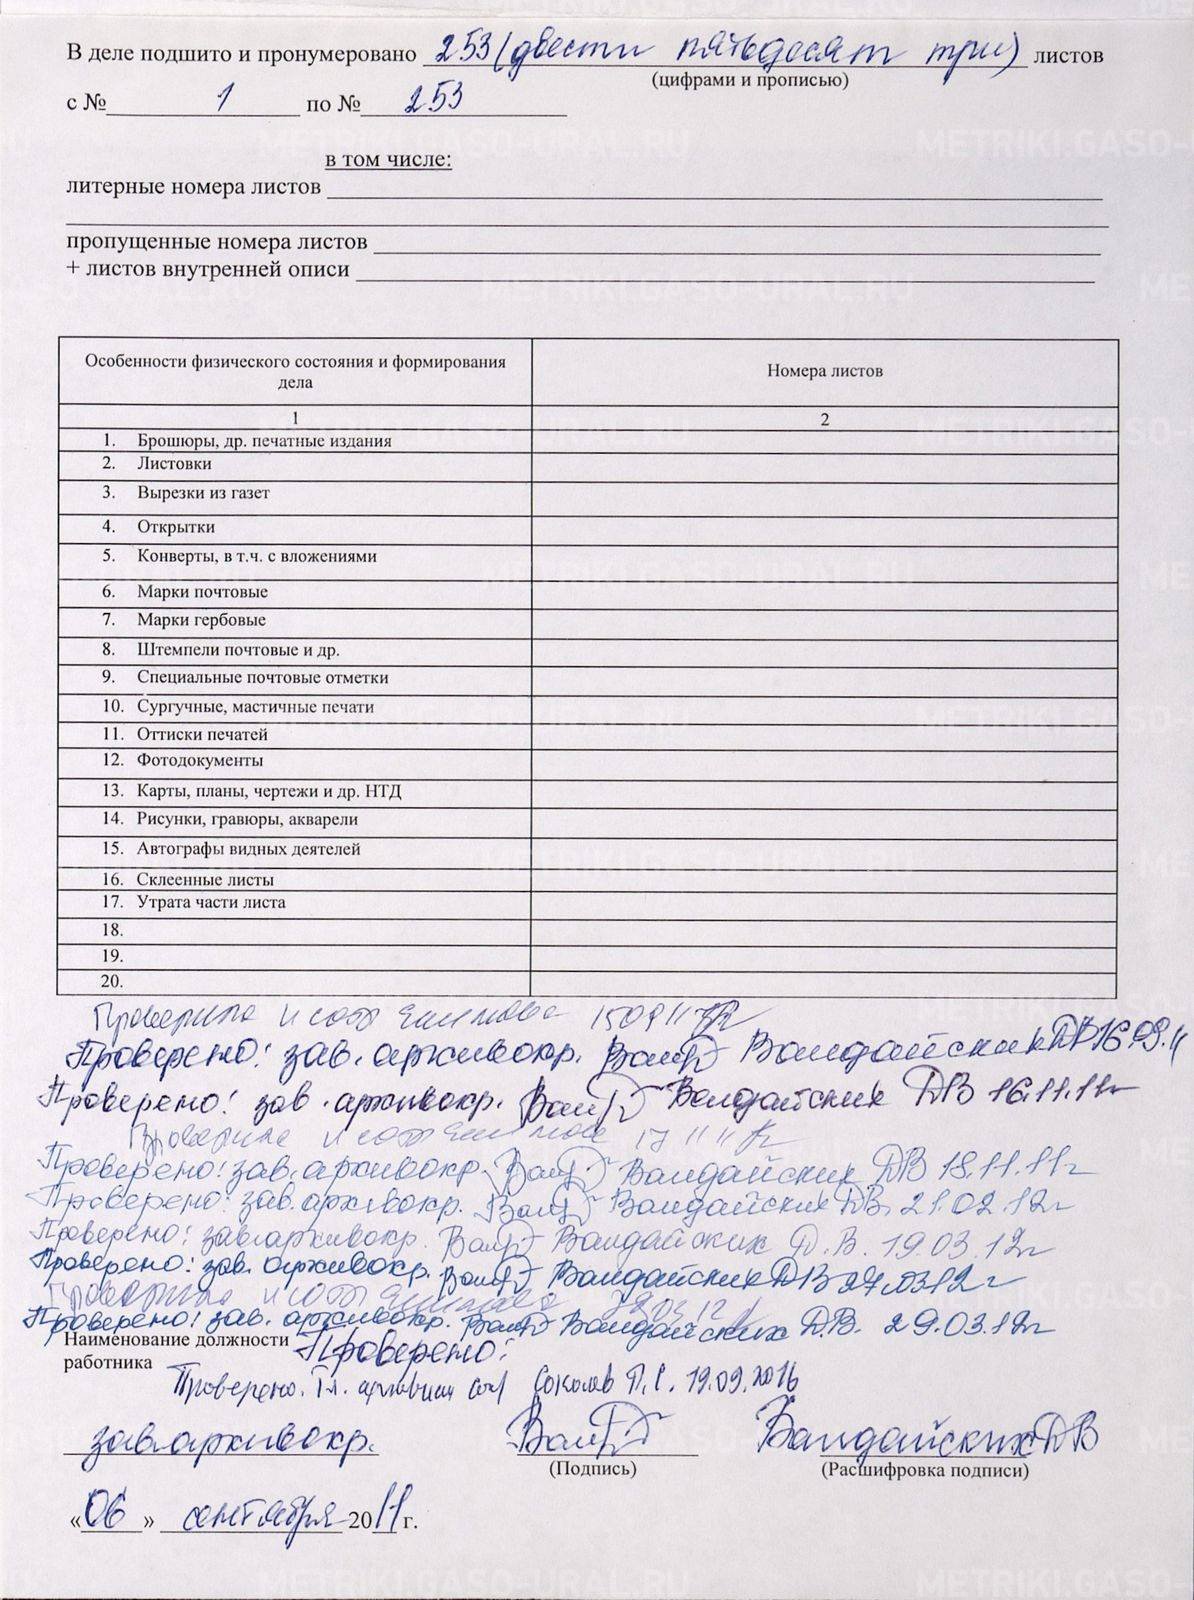 В деле подшито и пронумеровано 253 (двести пятьдесят три) листов
(цифрами и прописью)
с № 1 по № 253
в том числе:
литерные номера листов
пропущенные номера листов
+ листов внутренней описи
Особенности физического состояния и формирования дела Номера листов
1 2
1. Брошюры, др. печатные издания
2. Листовки
3. Вырезки из газет
4. Открытки
5. Конверты, в т.ч. с вложениями
6. Марки почтовые
7. Марки гербовые
8. Штемпели почтовые и др.
9. Специальные почтовые отметки
10. Сургучные, мастичные печати
11. Оттиски печатей
12. Фотодокументы
13. Карты, планы, чертежи и др. НТД
14. Рисунки, гравюры, акварели
15. Автографы видных деятелей
16. Склеенные листы
17. Утрата части листа
18.
19.
20.
Проверила
Проверено: зав. архивохр. Валдайских ДВ 16.09.11
Проверено: зав. архивохр. Валдайских ДВ 16.11.11г
Проверила
Проверено: зав. архивохр. Валдайских ДВ 18.11.11г
Проверено: зав. архивохр. Валдайских ДВ. 21.02.12г
Проверено: зав. архивохр. Валдайских Д.В. 19.03.12г
Проверено: зав. архивохр. Валдайских ДВ 27.03.12г
Проверила
Проверено: зав. архивохр. Валдайских Д.В. 29.03.12г
Наименование должности Проверено:
работника
Проверено. Гл. Соколов 19.09.2016
зав. архивохр. Валдайских ДВ
(Подпись) (Расшифровка подписи)
«06» сентября 2011 г.
METRIKI.GASO-URAL.RU